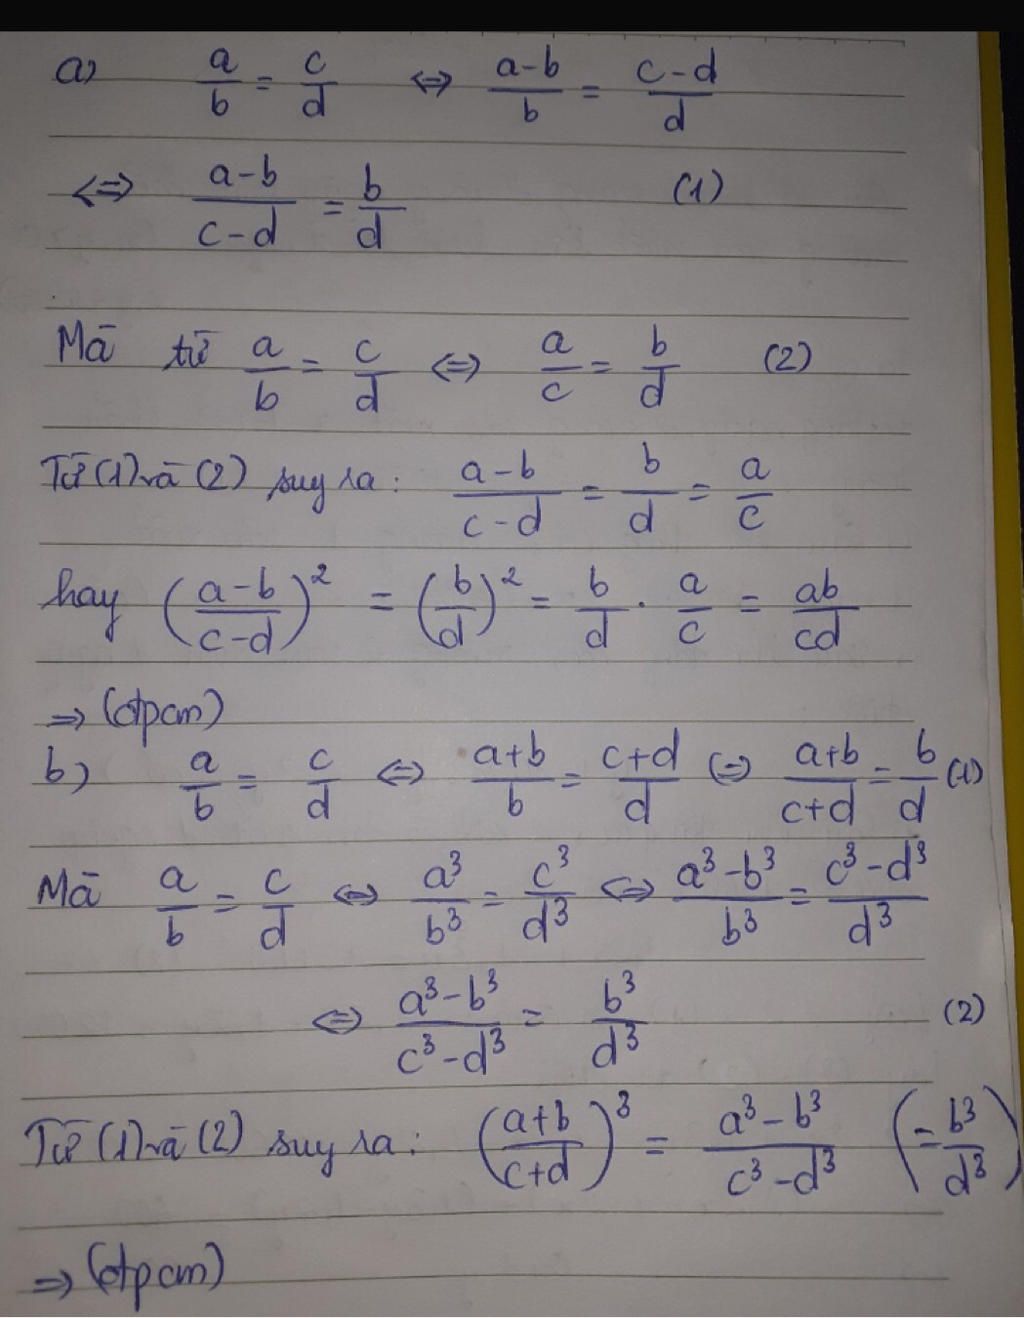 a) a/b = c/d ⇔ (a-b)/b = (c-d)/d
⇔ (a-b)/(c-d) = b/d (1)
Mà từ a/b = c/d ⇔ a/c = b/d (2)
Từ (1) và (2) suy ra: (a-b)/(c-d) = b/d = a/c
hay ((a-b)/(c-d))² = (b/d)² = b/d . a/c = ab/cd
⇒ (đpcm)
b) a/b = c/d ⇔ (a+b)/b = (c+d)/d ⇔ (a+b)/(c+d) = b/d (1)
Mà a/b = c/d ⇔ a³/b³ = c³/d³ ⇔ (a³-b³)/b³ = (c³-d³)/d³
⇔ (a³-b³)/(c³-d³) = b³/d³ (2)
Từ (1) và (2) suy ra: ((a+b)/(c+d))³ = (a³-b³)/(c³-d³) (= b³/d³)
⇒ (đpcm)